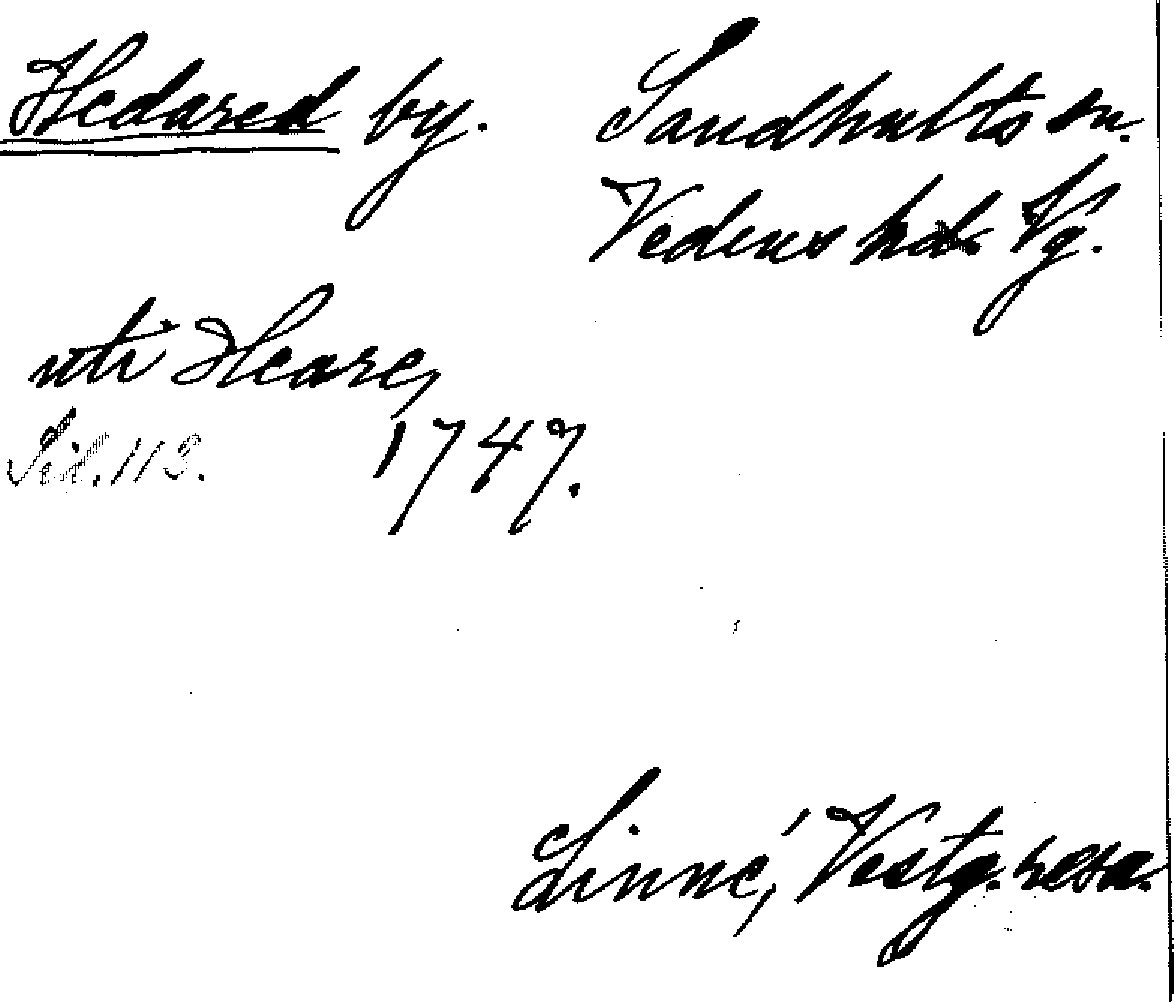 Hedared by. Sandhults sn.
Vedens hd. Vg.
uti Heare,
Sid. 113. 1747.
Linné, Vestg. resa.